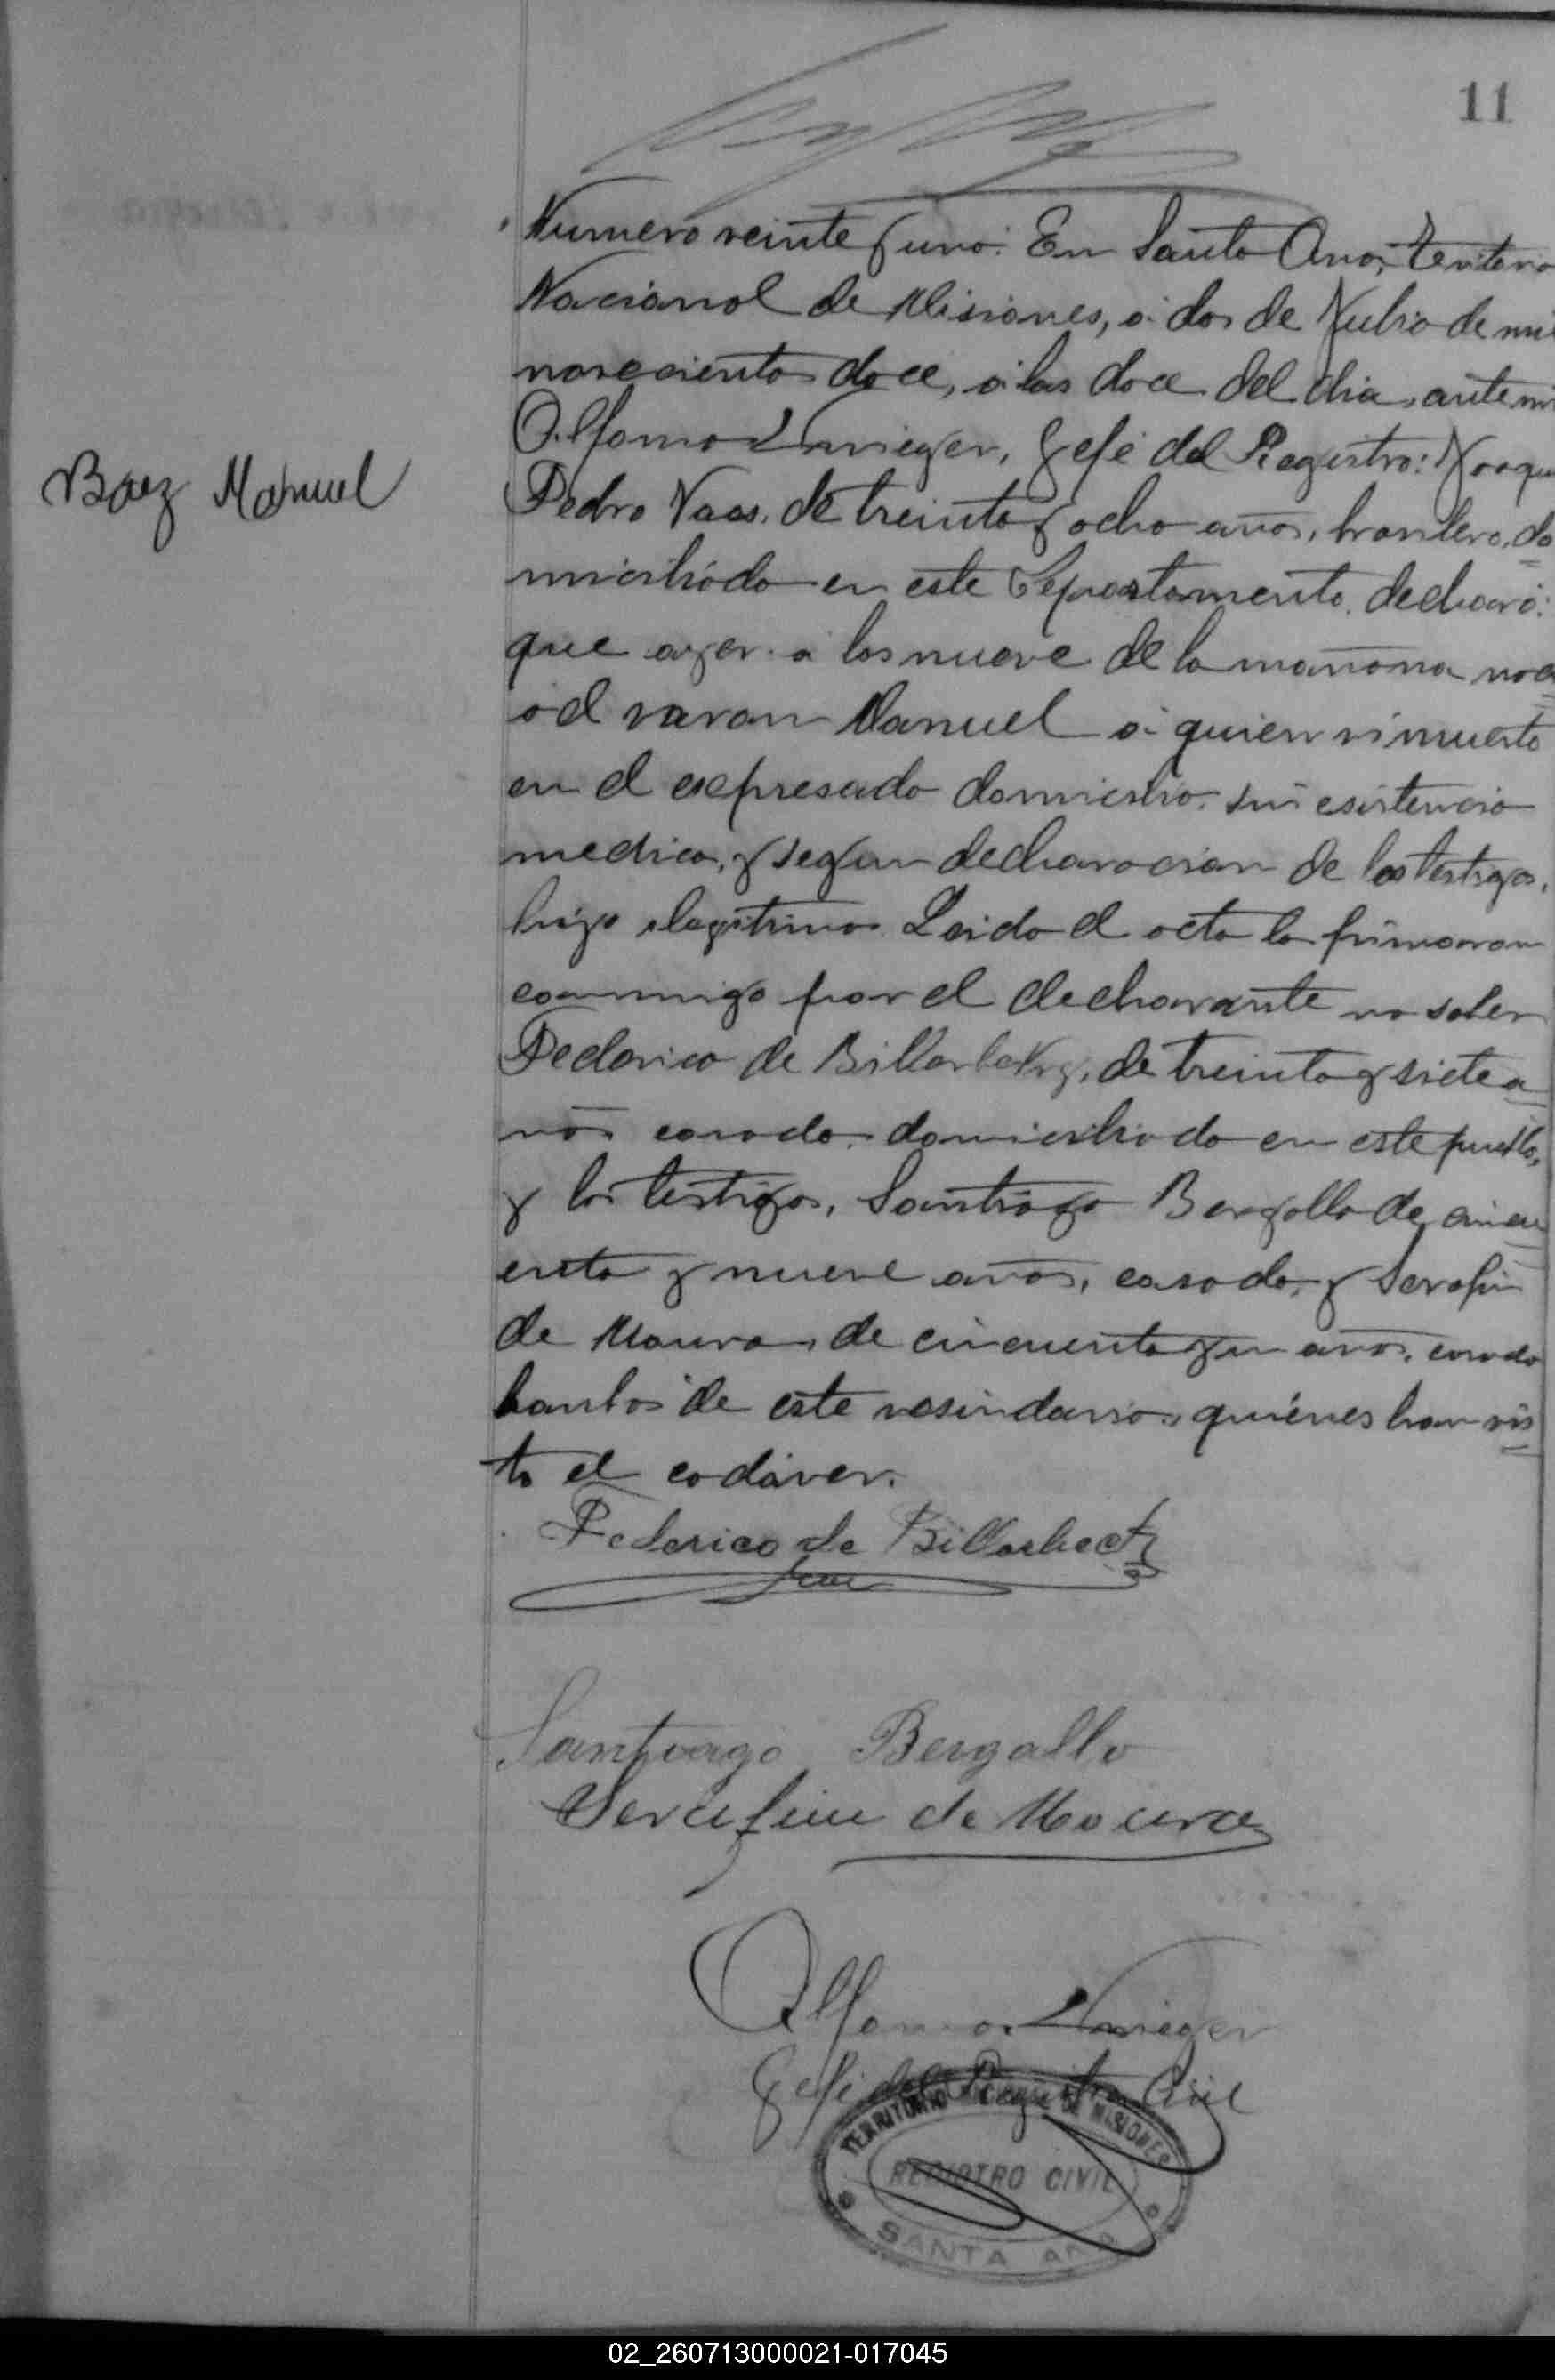 11
Numero veinte y uno: En Santa Ana, Territorio
Nacional de Misiones, á dos de Julio de mil
novecientos doce, á las doce del dia, ante mi
Alfonso Krieger, Gefe del Registro:
Baez Manuel
Pedro de treinta y ocho años, brasilero, do
miciliado en este Departamento, declaró:
que ayer á las nueve de la mañana
ó el varon Manuel á quien vi muerto
en el expresado domicilio, sin esistencia
medica, y segun declaracion de los testigos,
hijo ilegitimo. Leido el acta la firmaron
conmigo por el declarante no saber
Federico de de treinta y siete a
ños casado, domiciliado en este pueblo,
y los testigos, Santiago Bergallo de cincu
enta y nueve años, casado, y Serafin
de Moura, de cincuenta y un años, casado
hambos de este vesindario, quiénes han vis
to el cadáver.
Federico de Billerbeck
Santiago Bergallo
Serafim de Moura
Alfonso Krieger
Gefe del Registro Civil
TERRITORIO NACIONAL DE MISIONES
REGISTRO CIVIL
SANTA ANA
02_260713000021-017045